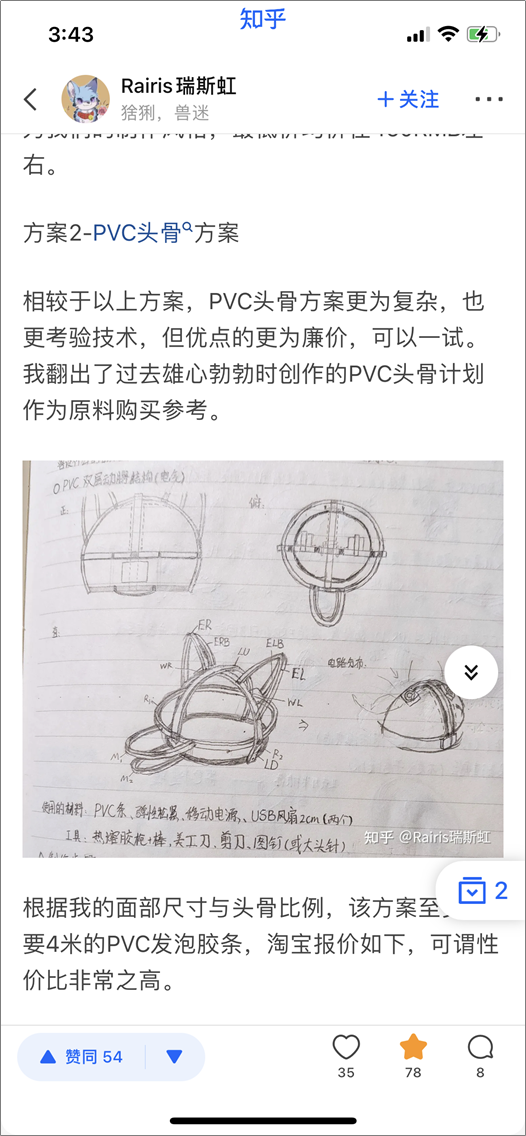 3:43
知乎
Rairis瑞斯虹
猞猁，兽迷
+ 关注
右。
方案2-PVC头骨方案
相较于以上方案，PVC头骨方案更为复杂，也
更考验技术，但优点的更为廉价，可以一试。
我翻出了过去雄心勃勃时创作的PVC头骨计划
作为原料购买参考。
PVC 双层动腭结构(电气)
正:
俯:
ER
EDB
LU
ELB
EL
WR
WL
R₂
LD
M₁
M₂
使用的材料: PVC条、弹性松紧、移动电源、USB风扇2cm(两个)
工具: 热熔胶枪+棒,美工刀、剪刀、图钉(或大头针)
知乎 @Rairis瑞斯虹
2
根据我的面部尺寸与头骨比例，该方案至
要4米的PVC发泡胶条，淘宝报价如下，可谓性
价比非常之高。
赞同 54
35
78
8